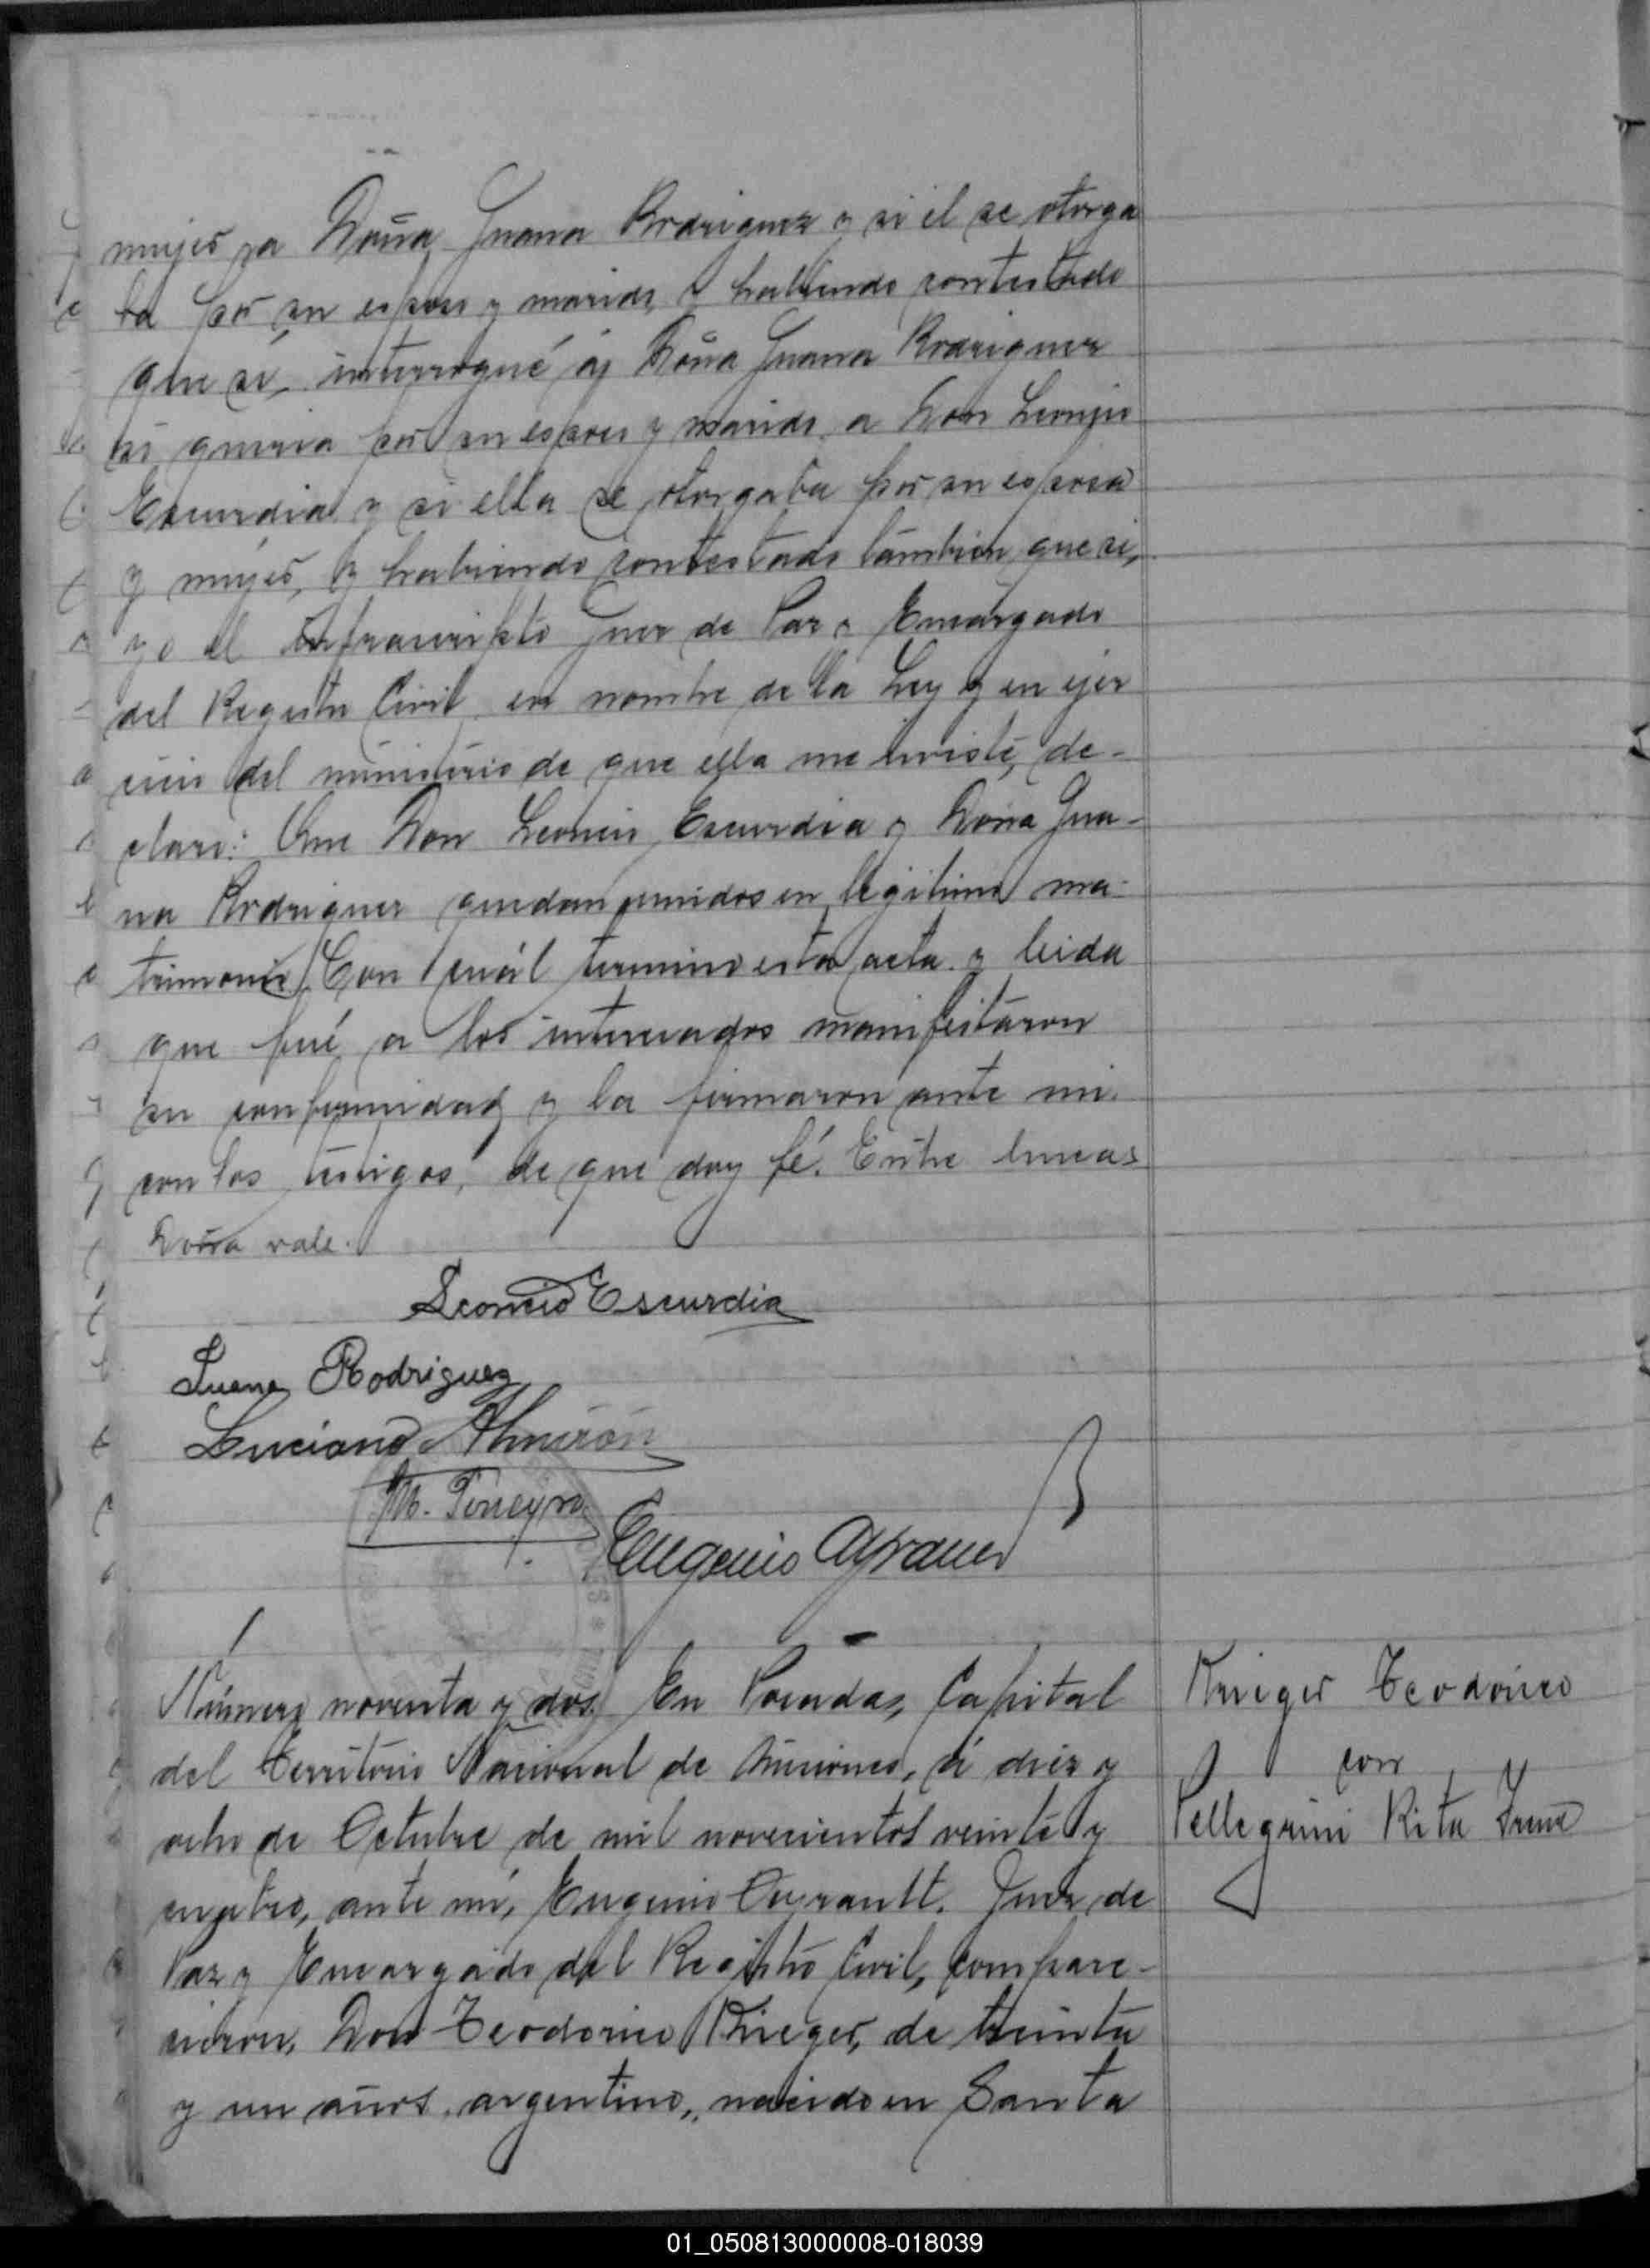 mujer a Doña Juana Rodriguez y si el se otorga
ba por su esposo y marido, y habiendo contestado
que sí, interrogué á Doña Juana Rodriguez
si queria por su esposo y marido a Don Leoncio
Escurdia y si ella se otorgaba por su esposa
y mujer, y habiendo contestado también que si,
yo el infrascripto Juez de Paz y Encargado
del Registro Civil, en nombre de la Ley y en ejer
cicio del ministerio de que ella me inviste, de-
claro: Que Don Leoncio Escurdia y Doña Jua-
na Rodriguez quedan unidos en legitimo ma-
trimonio. Con cuál termino esta acta y leida
que fué a los interesados manifestaron
su conformidad y la firmaron ante mi
con los testigos, de que doy fé. Entre lineas
Doña vale.
Leoncio Escurdia
Juana Rodriguez
Luciano Almirón
M. Ferreyra
Eugenio Ayrault
Número noventa y dos. En Posadas, Capital
del Territorio Nacional de Misiones, á diez y
ocho de Octubre de mil novecientos veinte y
cuatro, ante mí, Eugenio Ayrault, Juez de
Paz y Encargado del Registro Civil, compare-
cieron, Don Teodorico Krieger, de treinta
y un años, argentino, nacido en Santa
Krieger Teodorico
con
Pellegrini Rita Irene
01_050813000008-018039